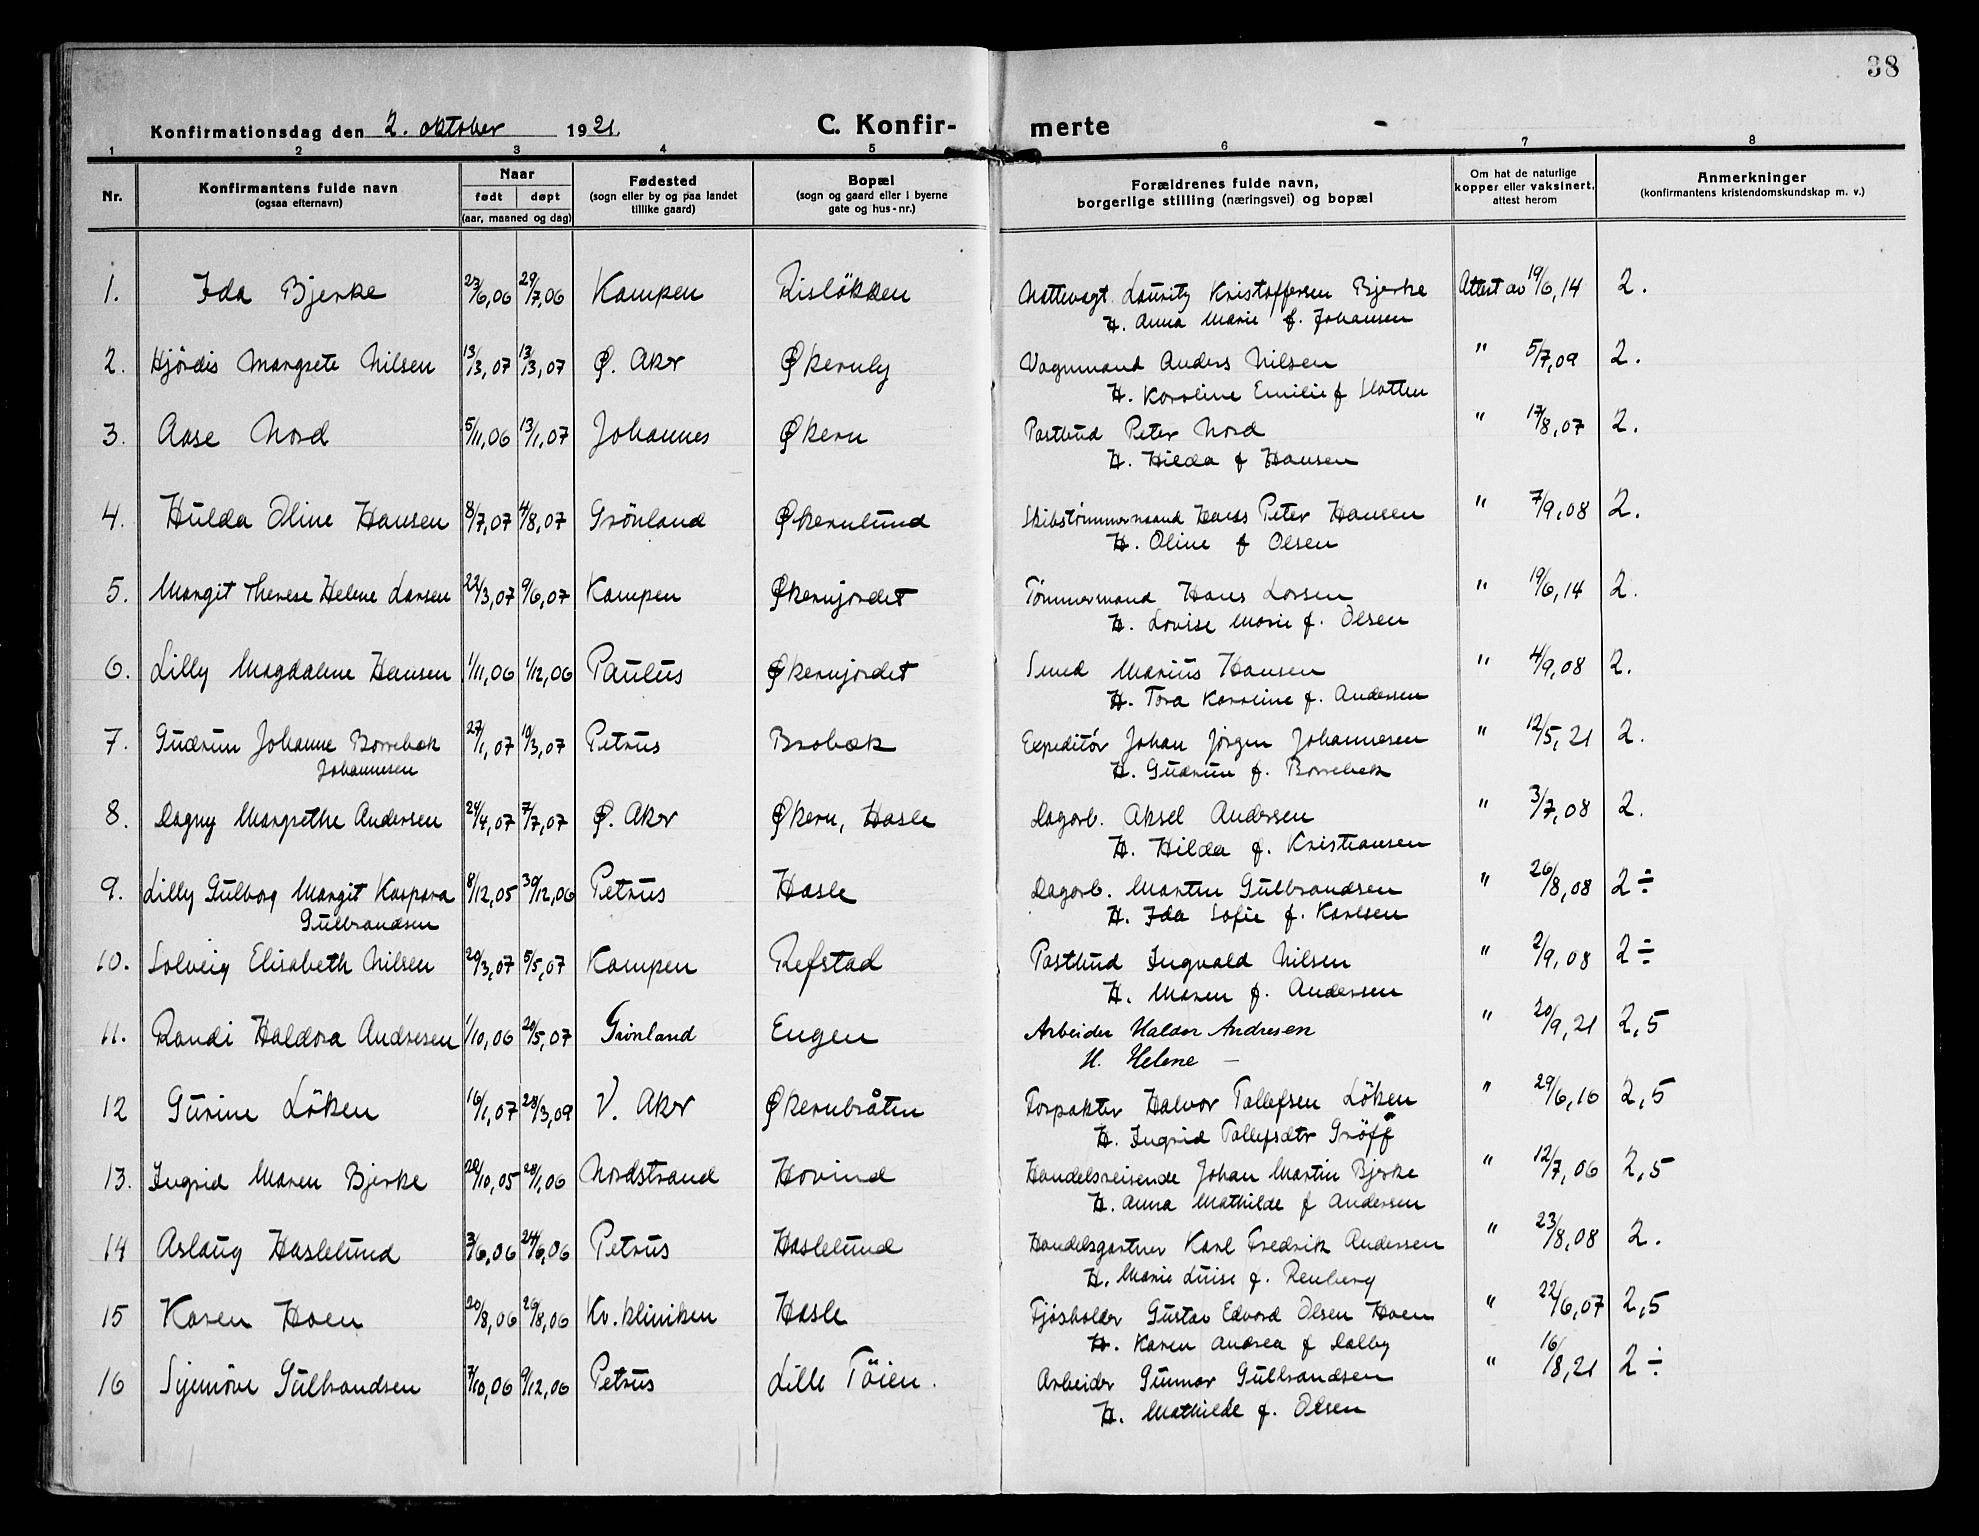 38
Konfirmationsdag den 2. oktober 1921.
C. Konfir-
merte
1 2 3 4 5 6 7 8
Nr.
Konfirmantens fulde navn
(ogsaa efternavn)
Naar
født døpt
(aar, maaned og dag)
Fødested
(sogn eller by og paa landet
tillike gaard)
Bopæl
(sogn og gaard eller i byerne
gate og hus-nr.)
Forældrenes fulde navn,
borgerlige stilling (næringsvei) og bopæl
Om hat de naturlige
kopper eller vaksinert,
attest herom
Anmerkninger
(konfirmantens kristendomskundskap m. v.)
1. Ida Bjerke 23/6,06 29/7,06 Kampen Risløkken Nattevagt Lauritz Kristoffersen Bjerke Attest av 19/6,14 2.
H. Anna Marie f. Johansen
2. Hjördis Margrete Nilsen 13/3,07 13/3,07 Ø. Aker Økernly Vognmand Anders Nilsen " 5/7,09 2.
H. Karoline Emilie f Slotten
3. Aase Nord 5/11,06 13/1,07 Johannes Økern Postbud Peter Nord " 17/8,07 2.
H. Hilda f Hansen
4. Hulda Oline Hansen 8/7,07 4/8,07 Grönland Økernlund Skibstømmermand Hans Peter Hansen " 7/9,08 2.
H. Oline f Olsen
5. Margit Therese Helene Larsen 22/3,07 9/6,07 Kampen Økernjordet Tømmermand Hans Larsen " 19/6,14 2.
H. Lovise Marie f. Olsen
6. Lilly Magdalene Hansen 1/11,06 1/12,06 Paulus Økernjordet Smed Marius Hansen " 4/9,08 2.
H. Tora Karoline f. Andersen
7. Gudrun Johanne Borrebæk 27/1,07 19/3,07 Petrus Brobæk Expeditör Johan Jörgen Johannesen " 12/5,21 2.
Johannesen H. Gudrun f. Borrebæk
8. Dagny Margrethe Andersen 24/4,07 7/7,07 Ø. Aker Økern, Hasle Dagarb. Aksel Andersen " 3/7,08 2.
H. Hilda f. Kristiansen
9. Lilly Gulborg Margit Kaspara 8/12,05 30/12,06 Petrus Hasle Dagarb. Martin Gulbrandsen " 26/8,08 2÷
Gulbrandsen H. Ida Sofie f. Karlsen
10. Solveig Elisabeth Nilsen 20/3,07 5/5,07 Kampen Refstad Postbud Ingvald Nilsen " 2/9,08 2÷
H. Maren f. Andersen
11. Randi Haldora Andresen 1/10,06 20/5,07 Grönland Engen Arbeider Haldor Andresen " 20/9,21 2,5
H. Helene —
12 Gurine Löken 16/1,07 28/3,09 V. Aker Økernbråten Forpakter Halvor Tollefsen Löken " 29/6,16 2,5
H. Ingrid Tollefsdtr Gröff
13. Ingrid Maren Bjerke 20/10,05 28/1,06 Nordstrand Hovind Handelsreisende Johan Martin Bjerke " 12/7,06 2,5
H. Anna Mathilde f Andersen
14 Aslaug Haslelund 3/6,06 24/6,06 Petrus Haslelund Handelsgartner Karl Fredrik Andersen " 23/8,08 2.
H. Marie Luise f. Renberg
15 Karen Hoen 20/8,06 26/8,06 Kv. kliniken Hasle Fjøsholder Gustav Edvard Olsen Hoen " 22/6,07 2,5
H. Karen Andrea f Dalby
16 Synnöve Gulbrandsen 7/10,06 9/12,06 Petrus Lille Töien. Arbeider Gunnar Gulbrandsen " 16/8,21 2÷
H. Mathilde f. Olsen